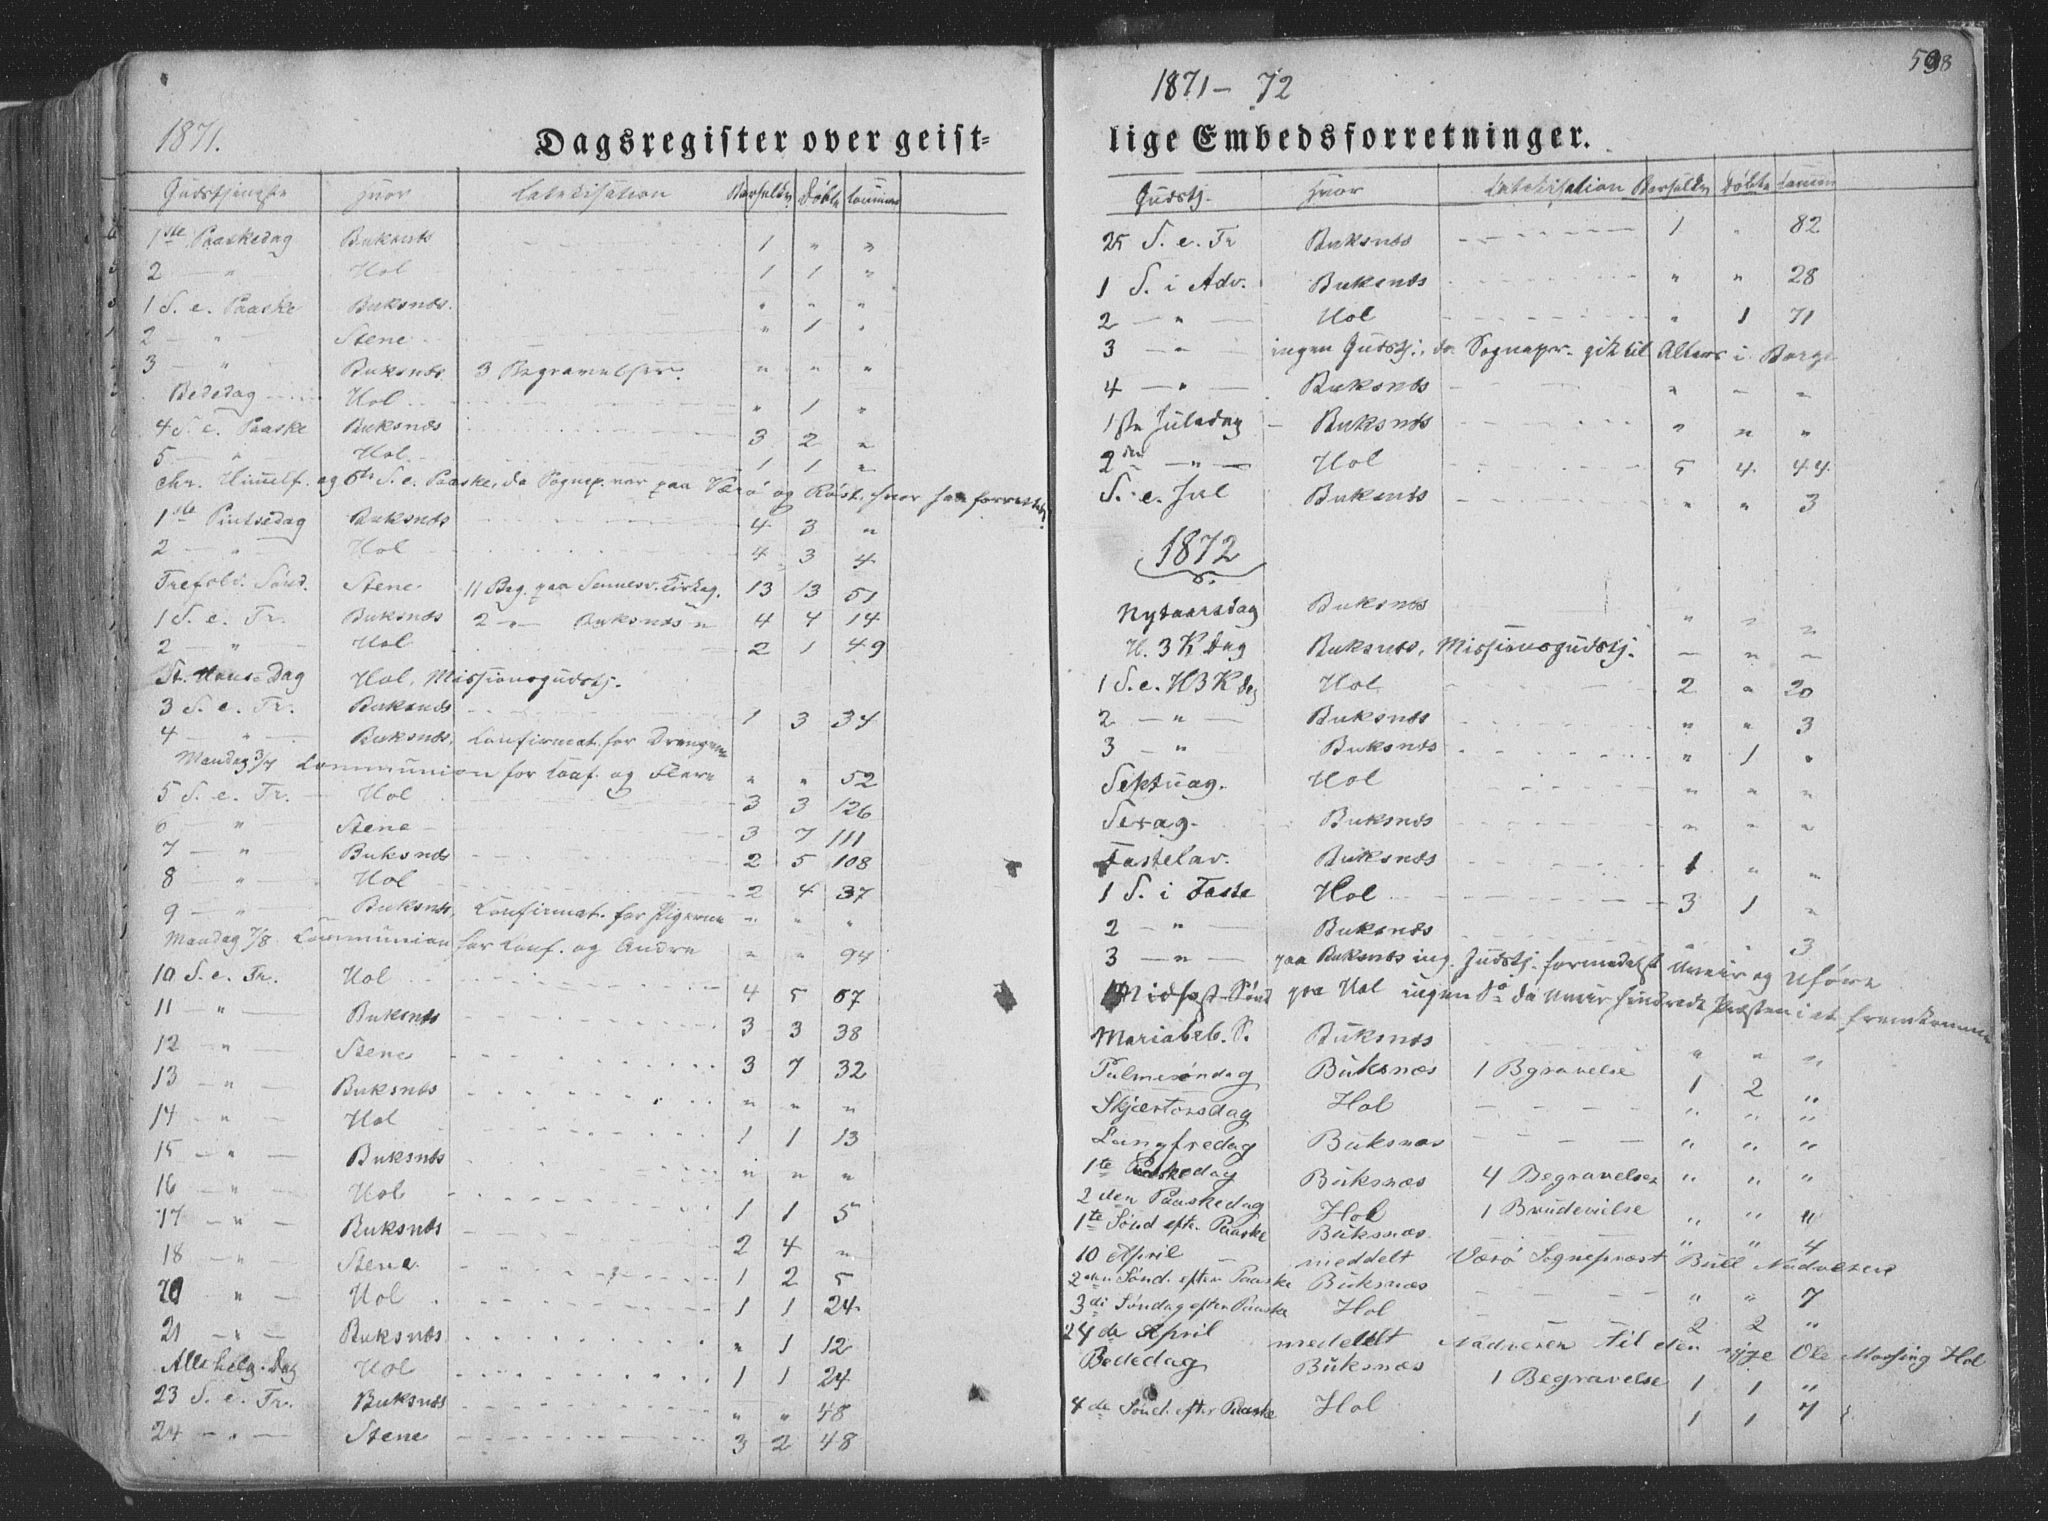 1871.
Dagsregister over geist-
Gudstjeneste Hvor Katekisation Barselkv. Døbte Commun.
1ste Paaskedag Buksnæs 1 " "
2 — " — Hol 1 1 "
1 S. e. Paaske Buksnæs " " "
2 — " — Stene " 1 "
3 — " Buksnæs 3 Begravelser. " " "
Bededag Hol " 1 "
4 S. e. Paaske Buksnæs 3 2 "
5 — " — Hol 1 1 "
Chr. Himmelf. og 6te S. e. Paaske, da Sognep. var paa Værø og Røst, hvor han forrettede
1ste Pintsedag Buksnæs 4 3 "
2 — " — Hol 4 3 4
Trefold. Sønd. Stene 11 Beg. paa Sennesv. Kirkeg. 13 13 51
1 S. e. Tr. Buksnæs 2 — " — Buksnæs " 4 4 14
2 — " — Hol 2 1 49
St. Hans Dag Hol, Missionsgudstj.
3 S. e. Tr. Buksnæs 1 3 34
4 — " — Buksnæs, Confirmat. for Drengene
Mandag 3/7 Communion for Conf. og Flere " " 52
5 S. e. Tr. — Hol 3 3 126
6 — " Stene 3 7 111
7 — " Buksnæs 2 5 108
8 — " — Hol 2 4 37
9 — " — Buksnæs, Confirmat. for Pigerne " " "
Mandag 7/8 Communion for Conf. og Andre " " 94
10 S. e. Tr. Hol 4 5 67
11 — " — Buksnæs 3 3 38
12 — " — Stene 3 7 32
13 — " — Buksnæs " " "
14 — " — Hol 1 1 13
15 — " — Buksnæs " " "
16 — " — Hol 1 1 5
17 — " — Buksnæs 2 4 "
18 — " — Stene 1 2 5
20 — " — Hol 1 1 24
21 — " — Buksnæs " 1 12
Allehelg. Dag Hol 1 1 24
23 S. e. Tr. Buksnæs " " 48
24 — " — Stene 3 2 48
1871 — 72
lige Embedsforretninger.
Gudstj. Hvor Katekisation Barselkv Døbte Comm
25 S. e. Tr Buksnæs 1 " 82
1 S. i Adv. Buksnæs " " 28
2 — " — Hol " 1 71
3 — " ingen Gudstj., da Sognepr. gik til Alters i Borge
4 — " — Buksnæs " " "
1ste Juledag Buksnæs " " "
2den — " — Hol 5 4 44
S. e. Jul Buksnæs " " 3
1872
Nytaarsdag Buksnæs " " "
H. 3 K Dag Buksnæs, Missionsgudstj. — " —
1 S. e. H3K Dg Hol 2 " 20
2 — " — Buksnæs " " 3
3 — " Buksnæs " 1 "
Septuag. Hol " " "
Sexag. Buksnæs " " "
Fastelav. Buksnæs 1 " "
1 S. i Faste Hol 3 1 "
2 — " — Buksnæs " " 3
3 — " — paa Buksnæs ing. Gudstj. formedelst Uveir og Uføre
Midfast. Sønd paa Hol ingen do da Uveir hindrede Præsten i at fremkomme
Mariabeb. S. Buksnæs " " "
Palmesøndag Buksnæs 1 Bgravelse 1 2 "
Skjærtorsdag Hol " " "
Langfredag Buksnæs " " "
1te Paaskedag Buksnæs 4 Begravelser " " "
2den Paaskedag Hol 1 Brudevielse " " "
1te Sønd efter Paaske Buksnæs " " 4
10 April meddelt Værø Sognepræst Bull Nadveren
2den Sønd. efter Paaske Buksnæs " " 7
3di Søndag efter Paaske Hol 2 2 "
24de April meddelt Nadveren til den syge Ole Hol
Bededag Buksnæs 1 Begravelse 1 1 "
4de Sønd. efter Paaske Hol 1 1 7